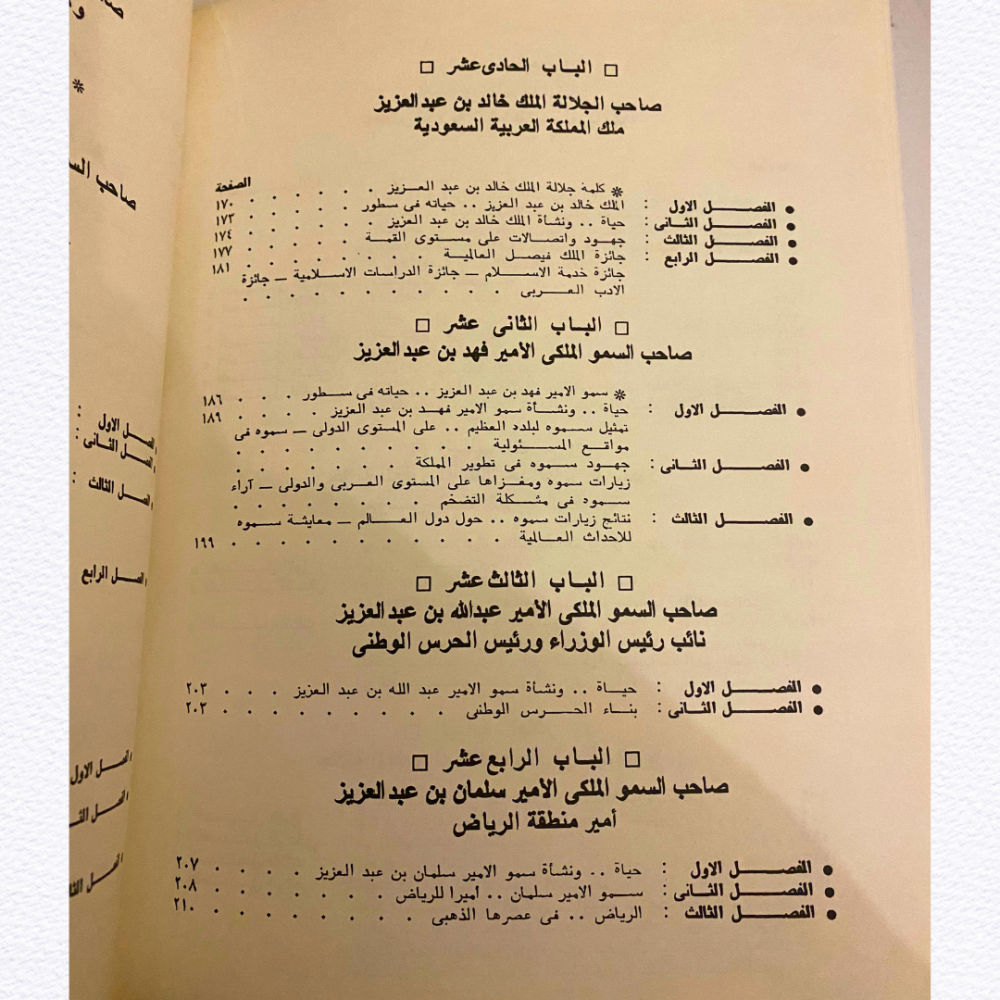 □ الباب الحادى عشر □
صاحب الجلالة الملك خالد بن عبد العزيز
ملك المملكة العربية السعودية
الصفحة
* كلمة جلالة الملك خالد بن عبد العزيز . . . . . ١٧٠
● الفصل الاول : الملك خالد بن عبد العزيز .. حياته فى سطور . . . . . ١٧٣
● الفصل الثانى : حياة .. ونشأة الملك خالد بن عبد العزيز . . . . . ١٧٤
● الفصل الثالث : جهود واتصالات على مستوى القمة . . . . . ١٧٧
● الفصل الرابع : جائزة الملك فيصل العالمية . . . . . ١٨١
جائزة خدمة الاسلام ــ جائزة الدراسات الاسلامية ــ جائزة
الادب العربى . . . . .
□ الباب الثانى عشر □
صاحب السمو الملكى الأمير فهد بن عبد العزيز
* سمو الامير فهد بن عبد العزيز .. حياته فى سطور . . . ١٨٦
● الفصل الاول : حياة .. ونشأة سمو الامير فهد بن عبد العزيز . . . . ١٨٩
تمثيل سموه لبلده العظيم .. على المستوى الدولى ــ سموه فى
مواقع المسئولية . . . . .
● الفصل الثانى : جهود سموه فى تطوير المملكة . . . . .
زيارات سموه ومغزاها على المستوى العربى والدولى ــ آراء
سموه فى مشكلة التضخم . . . . .
● الفصل الثالث : نتائج زيارات سموه .. حول دول العالم ــ معايشة سموه
للاحداث العالمية . . . . . ١٩٩
□ الباب الثالث عشر □
صاحب السمو الملكى الأمير عبدالله بن عبد العزيز
نائب رئيس الوزراء ورئيس الحرس الوطنى
● الفصل الاول : حياة .. ونشأة سمو الامير عبد الله بن عبد العزيز . . . ٢٠٣
● الفصل الثانى : بناء الحرس الوطنى . . . . . ٢٠٣
□ الباب الرابع عشر □
صاحب السمو الملكى الأمير سلمان بن عبد العزيز
أمير منطقة الرياض
● الفصل الاول : حياة .. ونشأة سمو الامير سلمان بن عبد العزيز . . . . ٢٠٧
● الفصل الثانى : سمو الامير سلمان .. أميرا للرياض . . . . . ٢٠٨
● الفصل الثالث : الرياض .. فى عصرها الذهبى . . . . . ٢١٠
*
صاحب
الفصل الاول :
الفصل الثانى :
الفصل الثالث :
الفصل الرابع
الفصل الاول